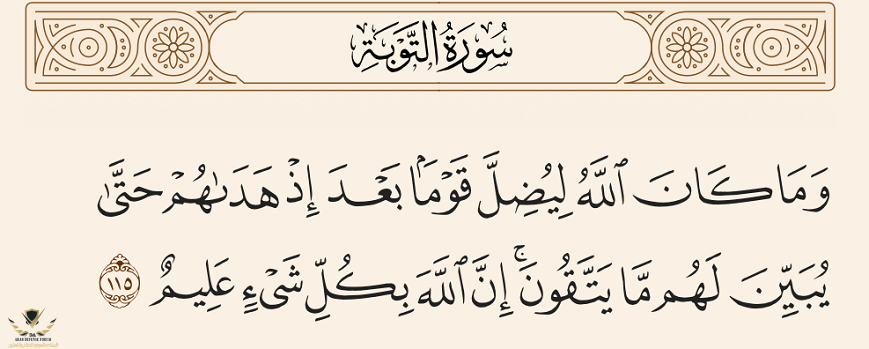 سُورَةُ التَّوْبَةِ
وَمَا كَانَ ٱللَّهُ لِيُضِلَّ قَوْمَۢا بَعْدَ إِذْ هَدَىٰهُمْ حَتَّىٰ
يُبَيِّنَ لَهُم مَّا يَتَّقُونَۚ إِنَّ ٱللَّهَ بِكُلِّ شَىْءٍ عَلِيمٌ ١١٥
ARAB DEFENSE FORUM